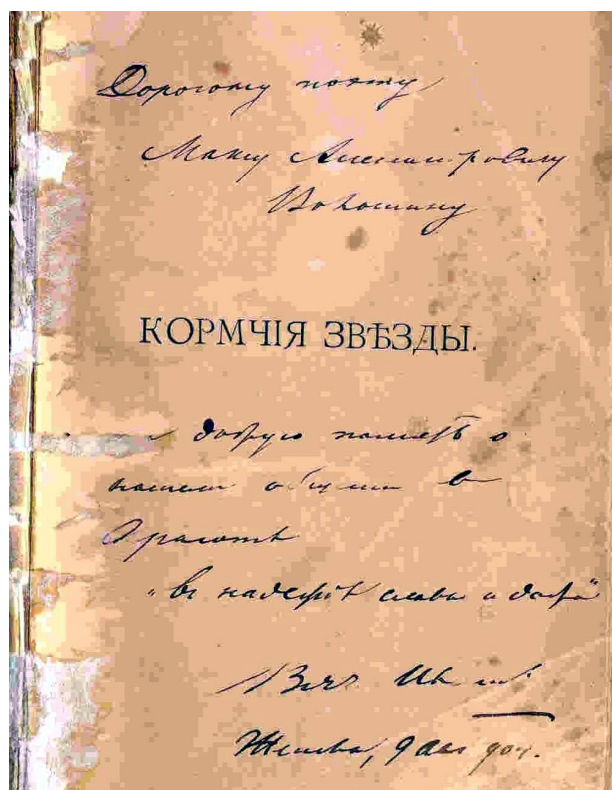 Дорогому поэту
Максу Александровичу
Волошину
КОРМЧІЯ ЗВѢЗДЫ.
добрую память о
нашем в
"въ надеждѣ славы и добра"
Вяч. Ив
Женева, 9 авг 904.